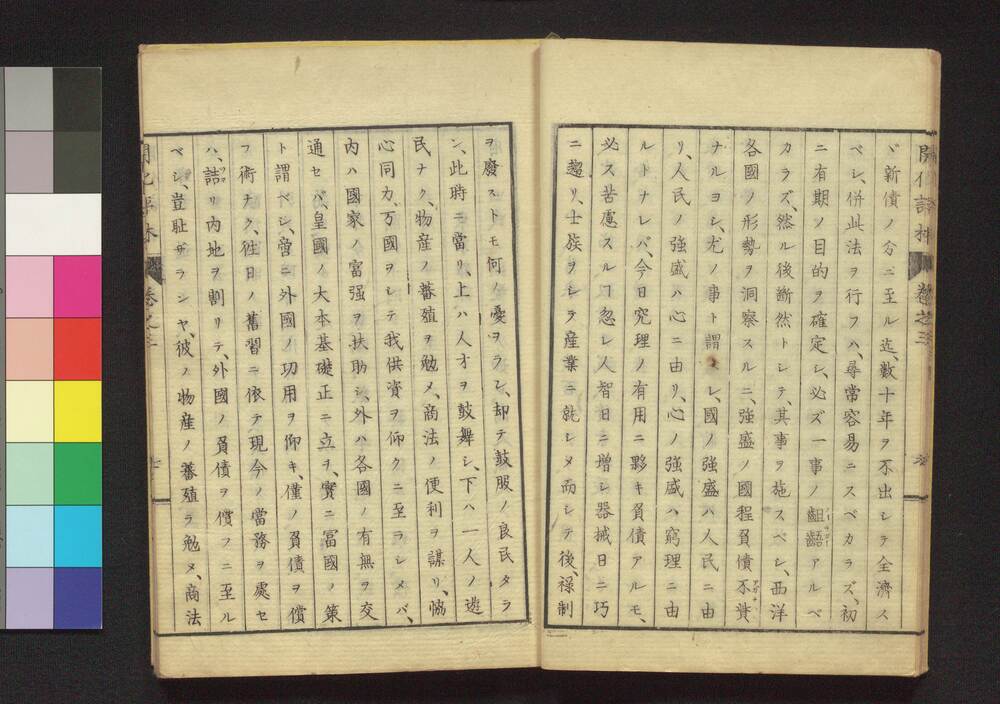 ヾ新債ノ分ニ至ル迄、數十年ヲ不出シテ全濟ス
ベシ、併此法ヲ行フハ、尋常容易ニスベカラズ、初
ニ有期ノ目的ヲ確定シ、必ズ一事ノ齟齬アルベ
カラズ、然ル後斷然トシテ、其事ヲ施スベシ、西洋
各國ノ形勢ヲ洞察スルニ、強盛ノ國程負債不貲
ナルヨシ、尤ノ事ト謂レ、國ノ強盛ハ人民ニ由
リ、人民ノ強盛ハ心ニ由リ、心ノ強盛ハ窮理ニ由
ルトナレバ、今日究理ノ有用ニ夥キ負債アルモ、
必ス苦慮スルヿ忽レ人智日ニ増シ器械日ニ巧
ニ趣リ、士族ヲシテ産業ニ就シメ而シテ後、祿制
ヲ廢ストモ何ノ憂ヲラン、却テ鼓腹ノ良民タラ
ン、此時ニ當リ、上ハ人才ヲ鼓舞シ、下ハ一人ノ遊
民ナク、物産ノ蕃殖ヲ勉メ、商法ノ便利ヲ謀リ、恊
心同力、万國ヲシテ我供資ヲ仰クニ至ラシメバ、
内ハ國家ノ富强ヲ扶助シ、外ハ各國ノ有無ヲ交
通セバ、皇國ノ大本基礎正ニ立ヲ、實ニ富國ノ策
ト謂ベシ、啻ニ外國ノ功用ヲ仰キ、僅ノ負債ヲ償
フ術ナク、徃日ノ舊習ニ依テ現今ノ當務ヲ處セ
ハ、詰リ内地ヲ割リテ、外國ノ負債ヲ償フニ至ル
ベシ、豈耻ザラシヤ、彼ノ物産ノ蕃殖ヲ勉メ、商法